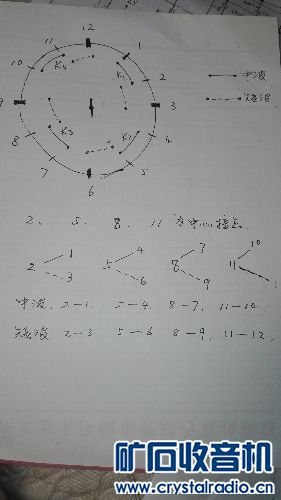 12
11 1
10 K4 K1 2
9 3 中波
短波
8 K3 K2 4
7 5
6
2、5、8、11 为中心接点
1 4 7 10
2 5 8 11
3 6 9
中波 2—1 5—4 8—7 11—10
短波 2—3 5—6 8—9 11—12
矿石收音机
www.crystalradio.cn